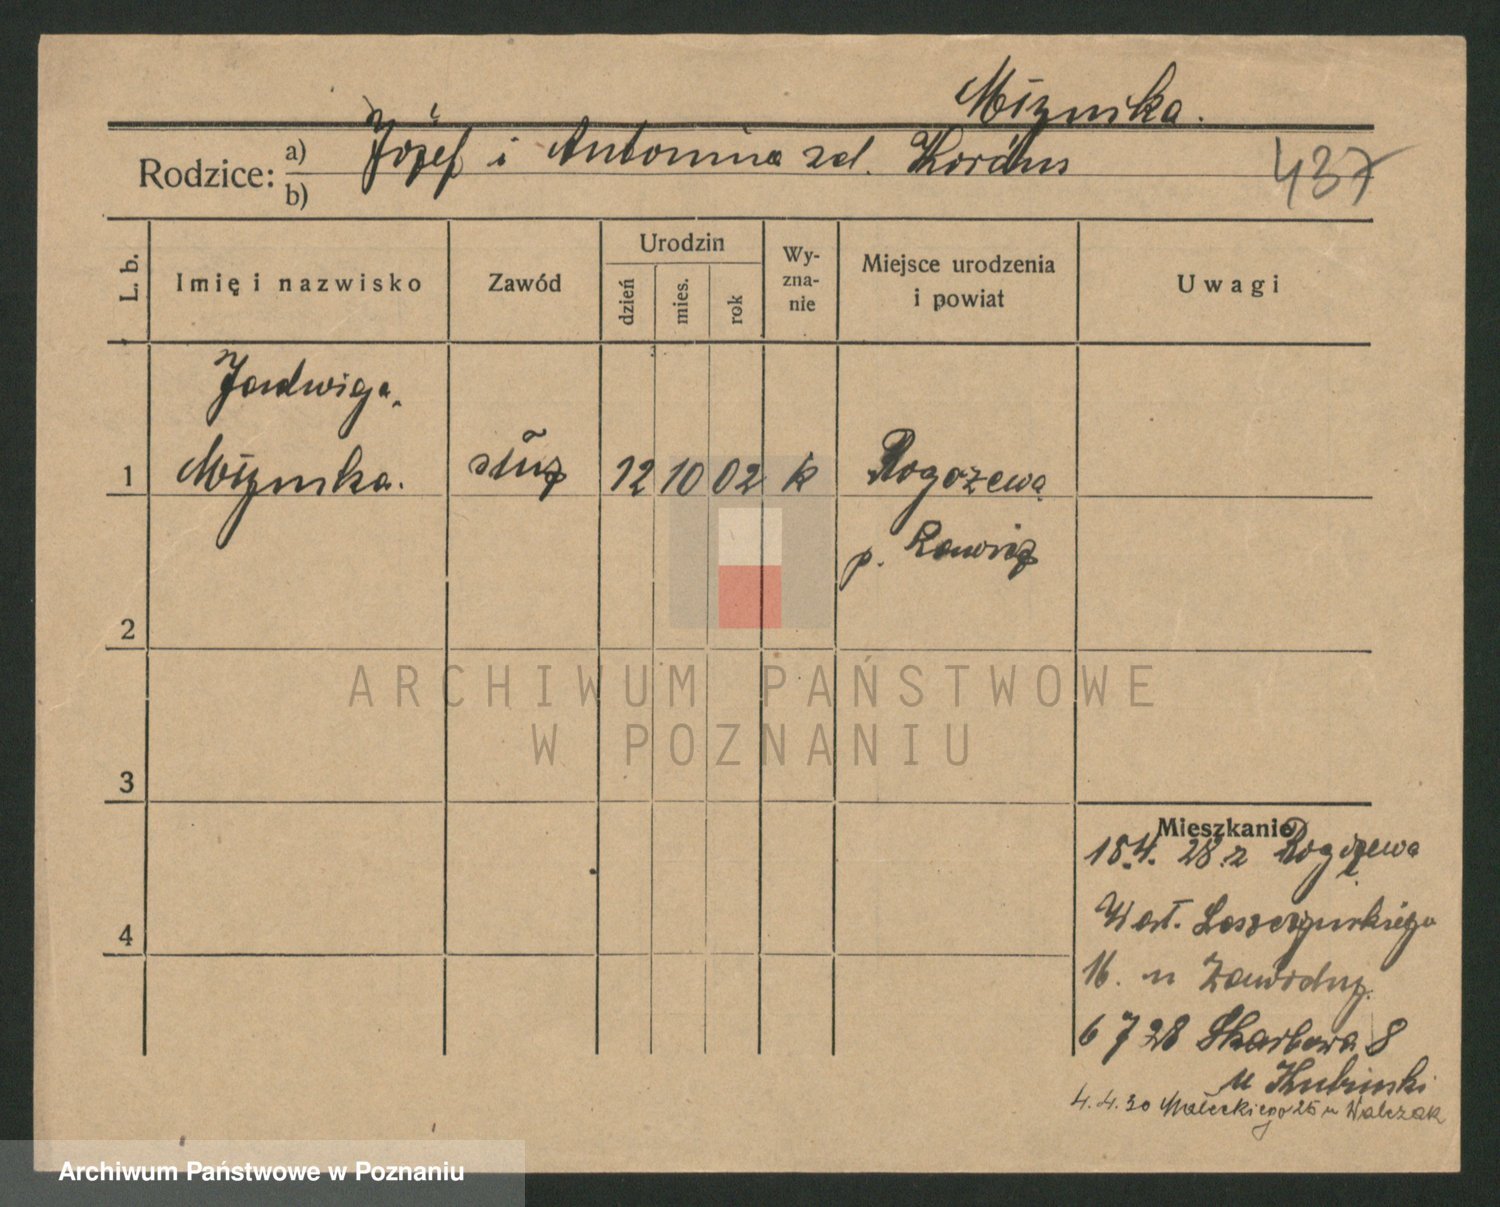 Mizynka.
Rodzice: a) Józef i Antonina zd. Kordus
b)
437
L. b.
Imię i nazwisko
Zawód
Urodzin
dzień
mies.
rok
Wy-
zna-
nie
Miejsce urodzenia
i powiat
Uwagi
Jadwiga
1 Mizynka. służ 12 10 02 k Rogożewa
p. Rawicz
2
3
4
ARCHIWUM PAŃSTWOWE
W POZNANIU
Mieszkanie
15.4. 28 z Rogożewa
Leszczyńskiego
16. u
6 7 28 Skarbowa 8
u Kubinski
4.4.30 Małeckiego 25 u Walczak
Archiwum Państwowe w Poznaniu